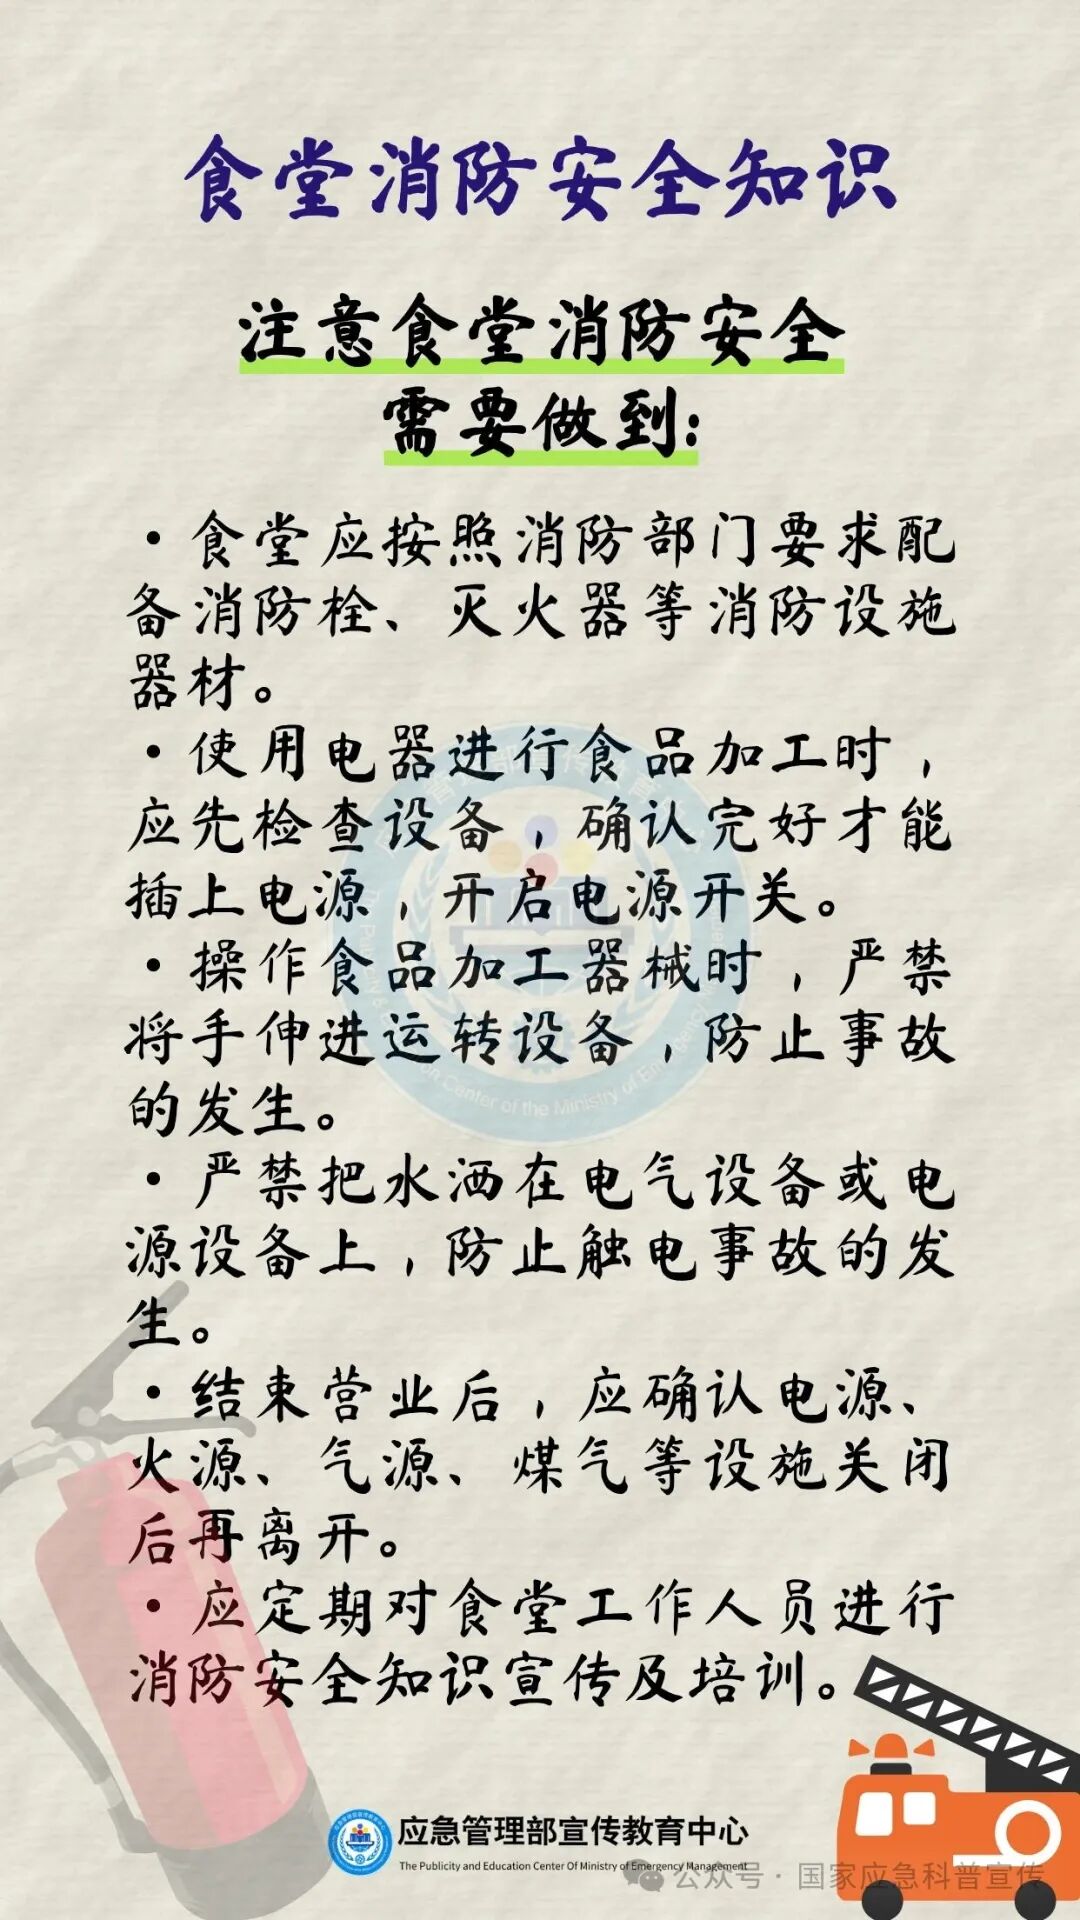 食堂消防安全知识
注意食堂消防安全
需要做到:
·食堂应按照消防部门要求配
备消防栓、灭火器等消防设施
器材。
·使用电器进行食品加工时，
应先检查设备，确认完好才能
插上电源，开启电源开关。
·操作食品加工器械时，严禁
将手伸进运转设备，防止事故
的发生。
·严禁把水洒在电气设备或电
源设备上，防止触电事故的发
生。
·结束营业后，应确认电源、
火源、气源、煤气等设施关闭
后再离开。
·应定期对食堂工作人员进行
消防安全知识宣传及培训。
应急管理部宣传教育中心
The Publicity and Education Center Of Ministry of Emergency Management
公众号·国家应急科普宣传